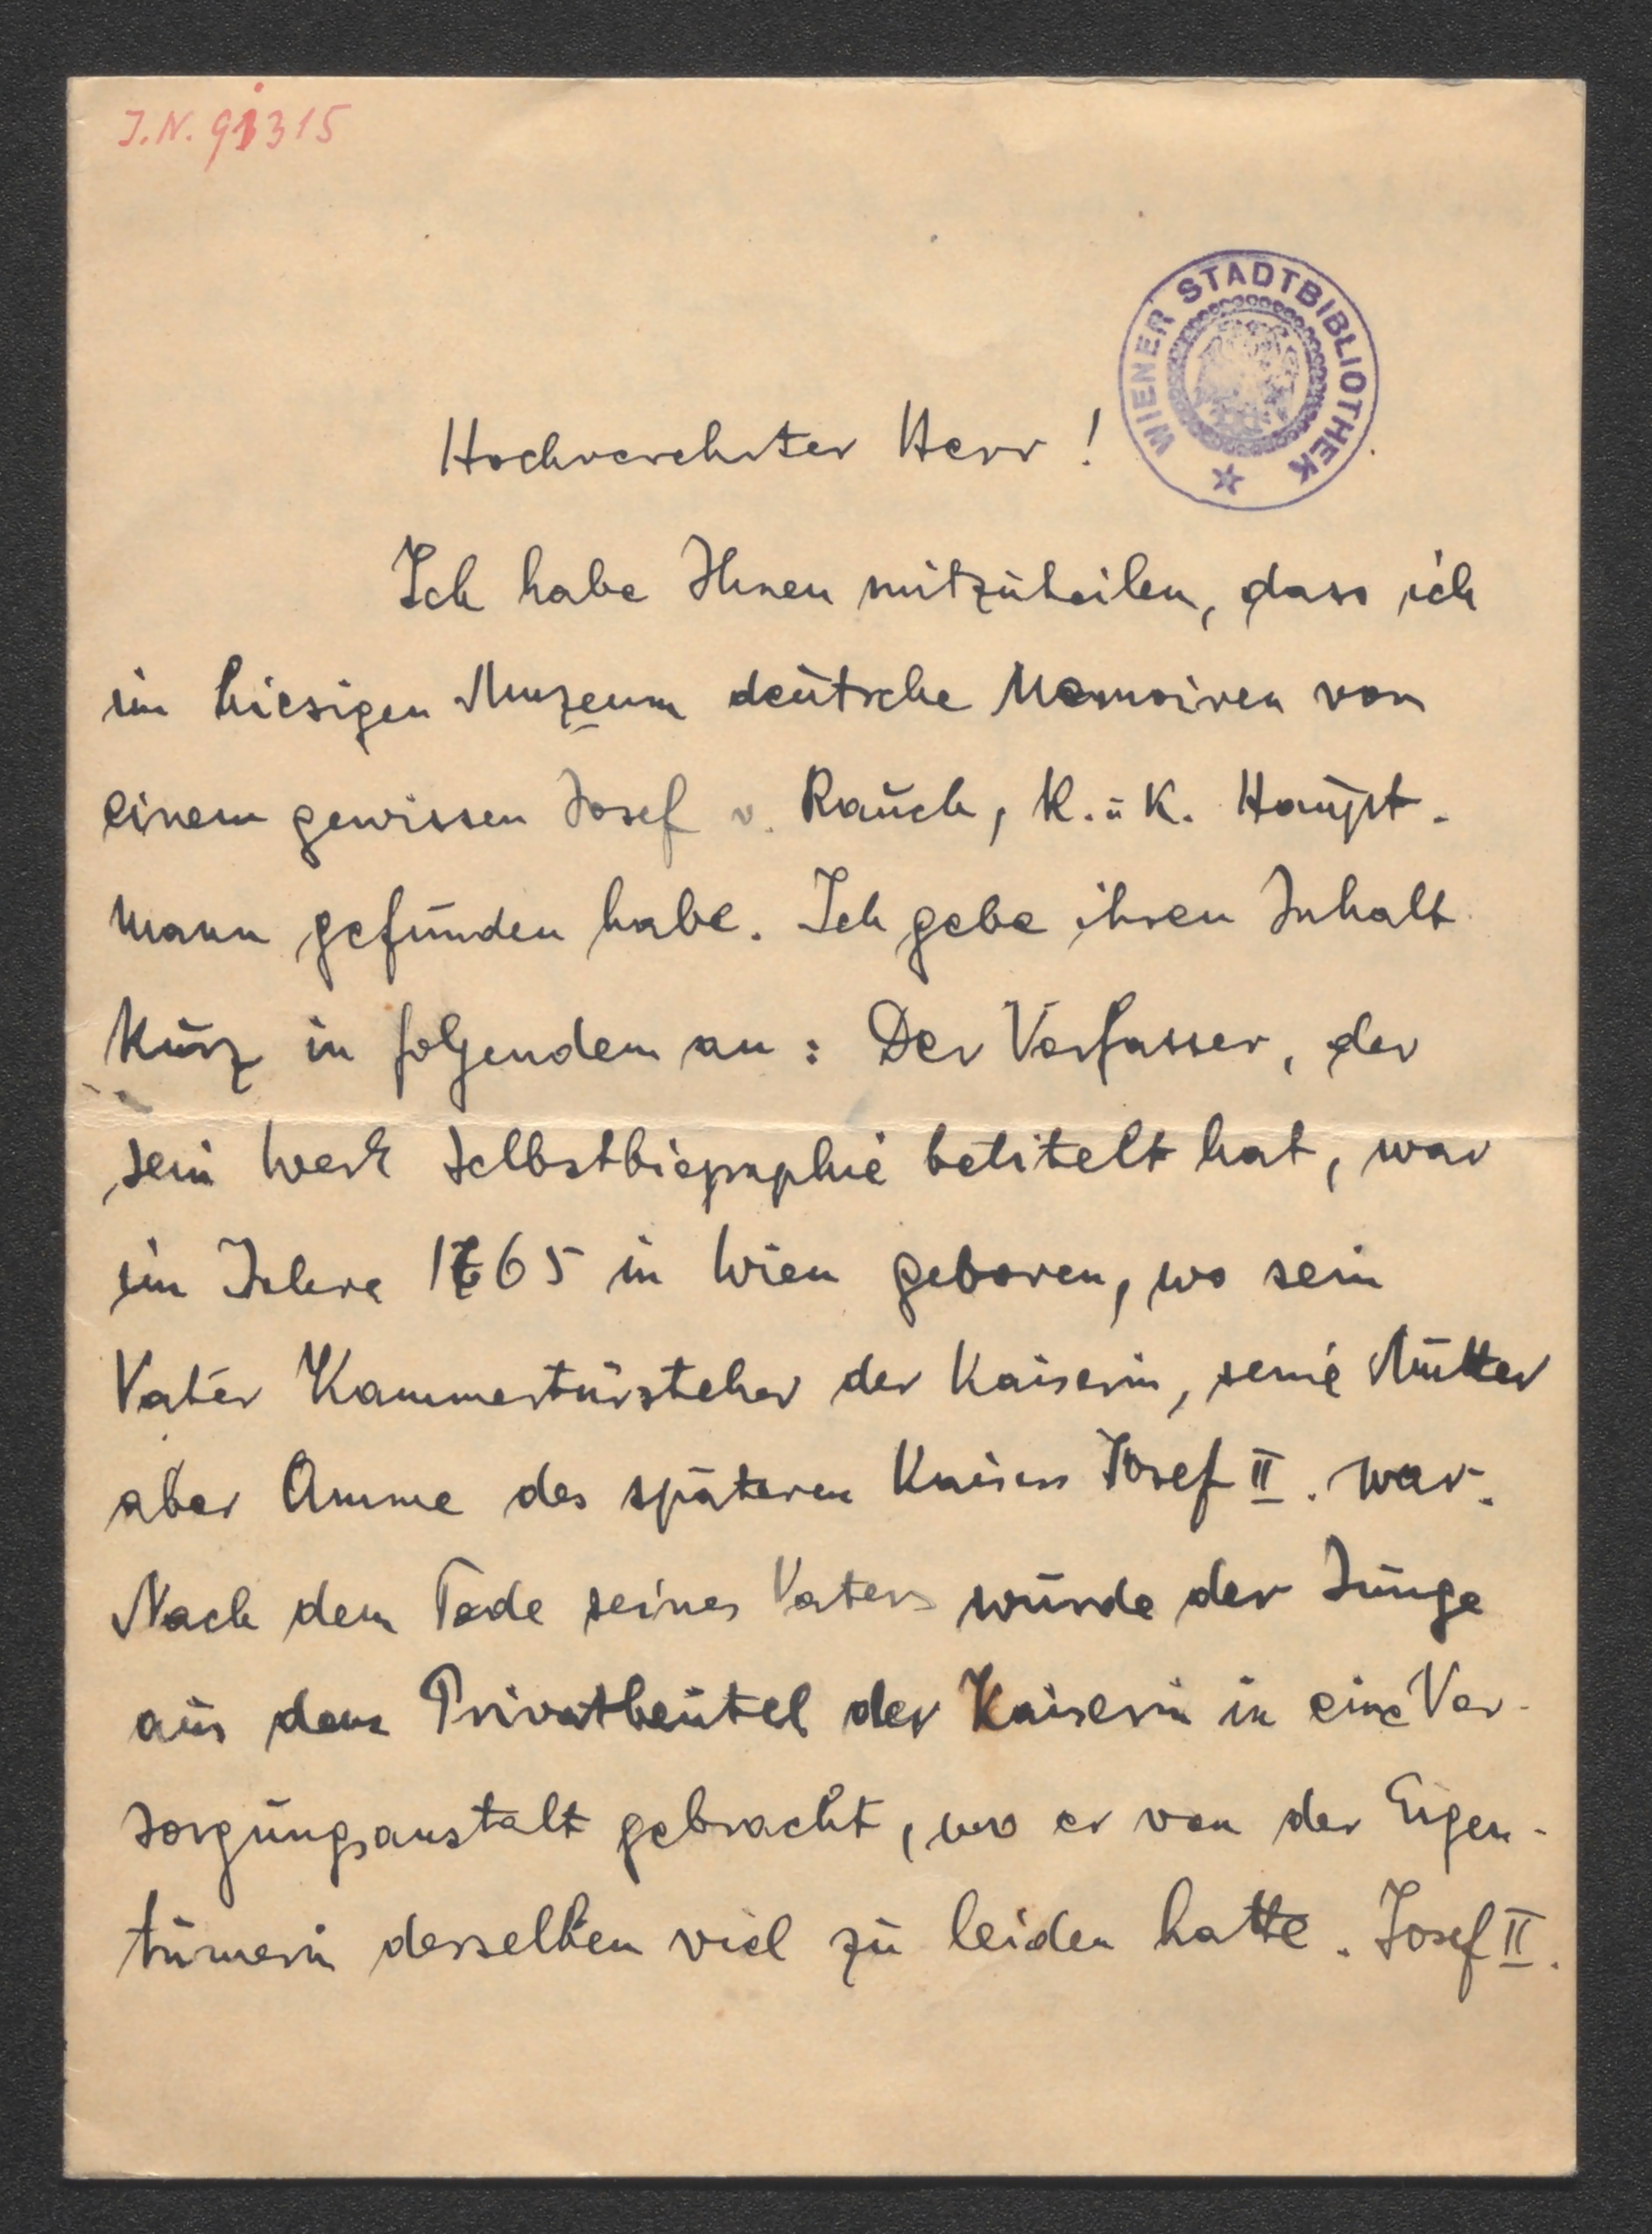 I.N. 91315
WIENER STADTBIBLIOTHEK
Hochverehrter Herr!
Ich habe Ihnen mitzuteilen, dass ich
im hiesigen Muzeum deutsche Memoiren von
einem gewissen Josef v. Rauch, K. u K. Haupt-
mann gefunden habe. Ich gebe ihren Inhalt
kurz in folgendem an: Der Verfasser, der
sein Werk Selbstbiographie betitelt hat, war
im Jahre 1765 in Wien geboren, wo sein
Vater Kammertürsteher der Kaiserin, seine Mutter
aber Amme des späteren Kaisers Josef II. war.
Nach dem Tode seines Vaters wurde der Junge
aus dem Privatbeutel der Kaiserin in eine Ver-
sorgungsanstalt gebracht, wo er von der Eigen-
tümerin desselben viel zu leiden hatte. Josef II.